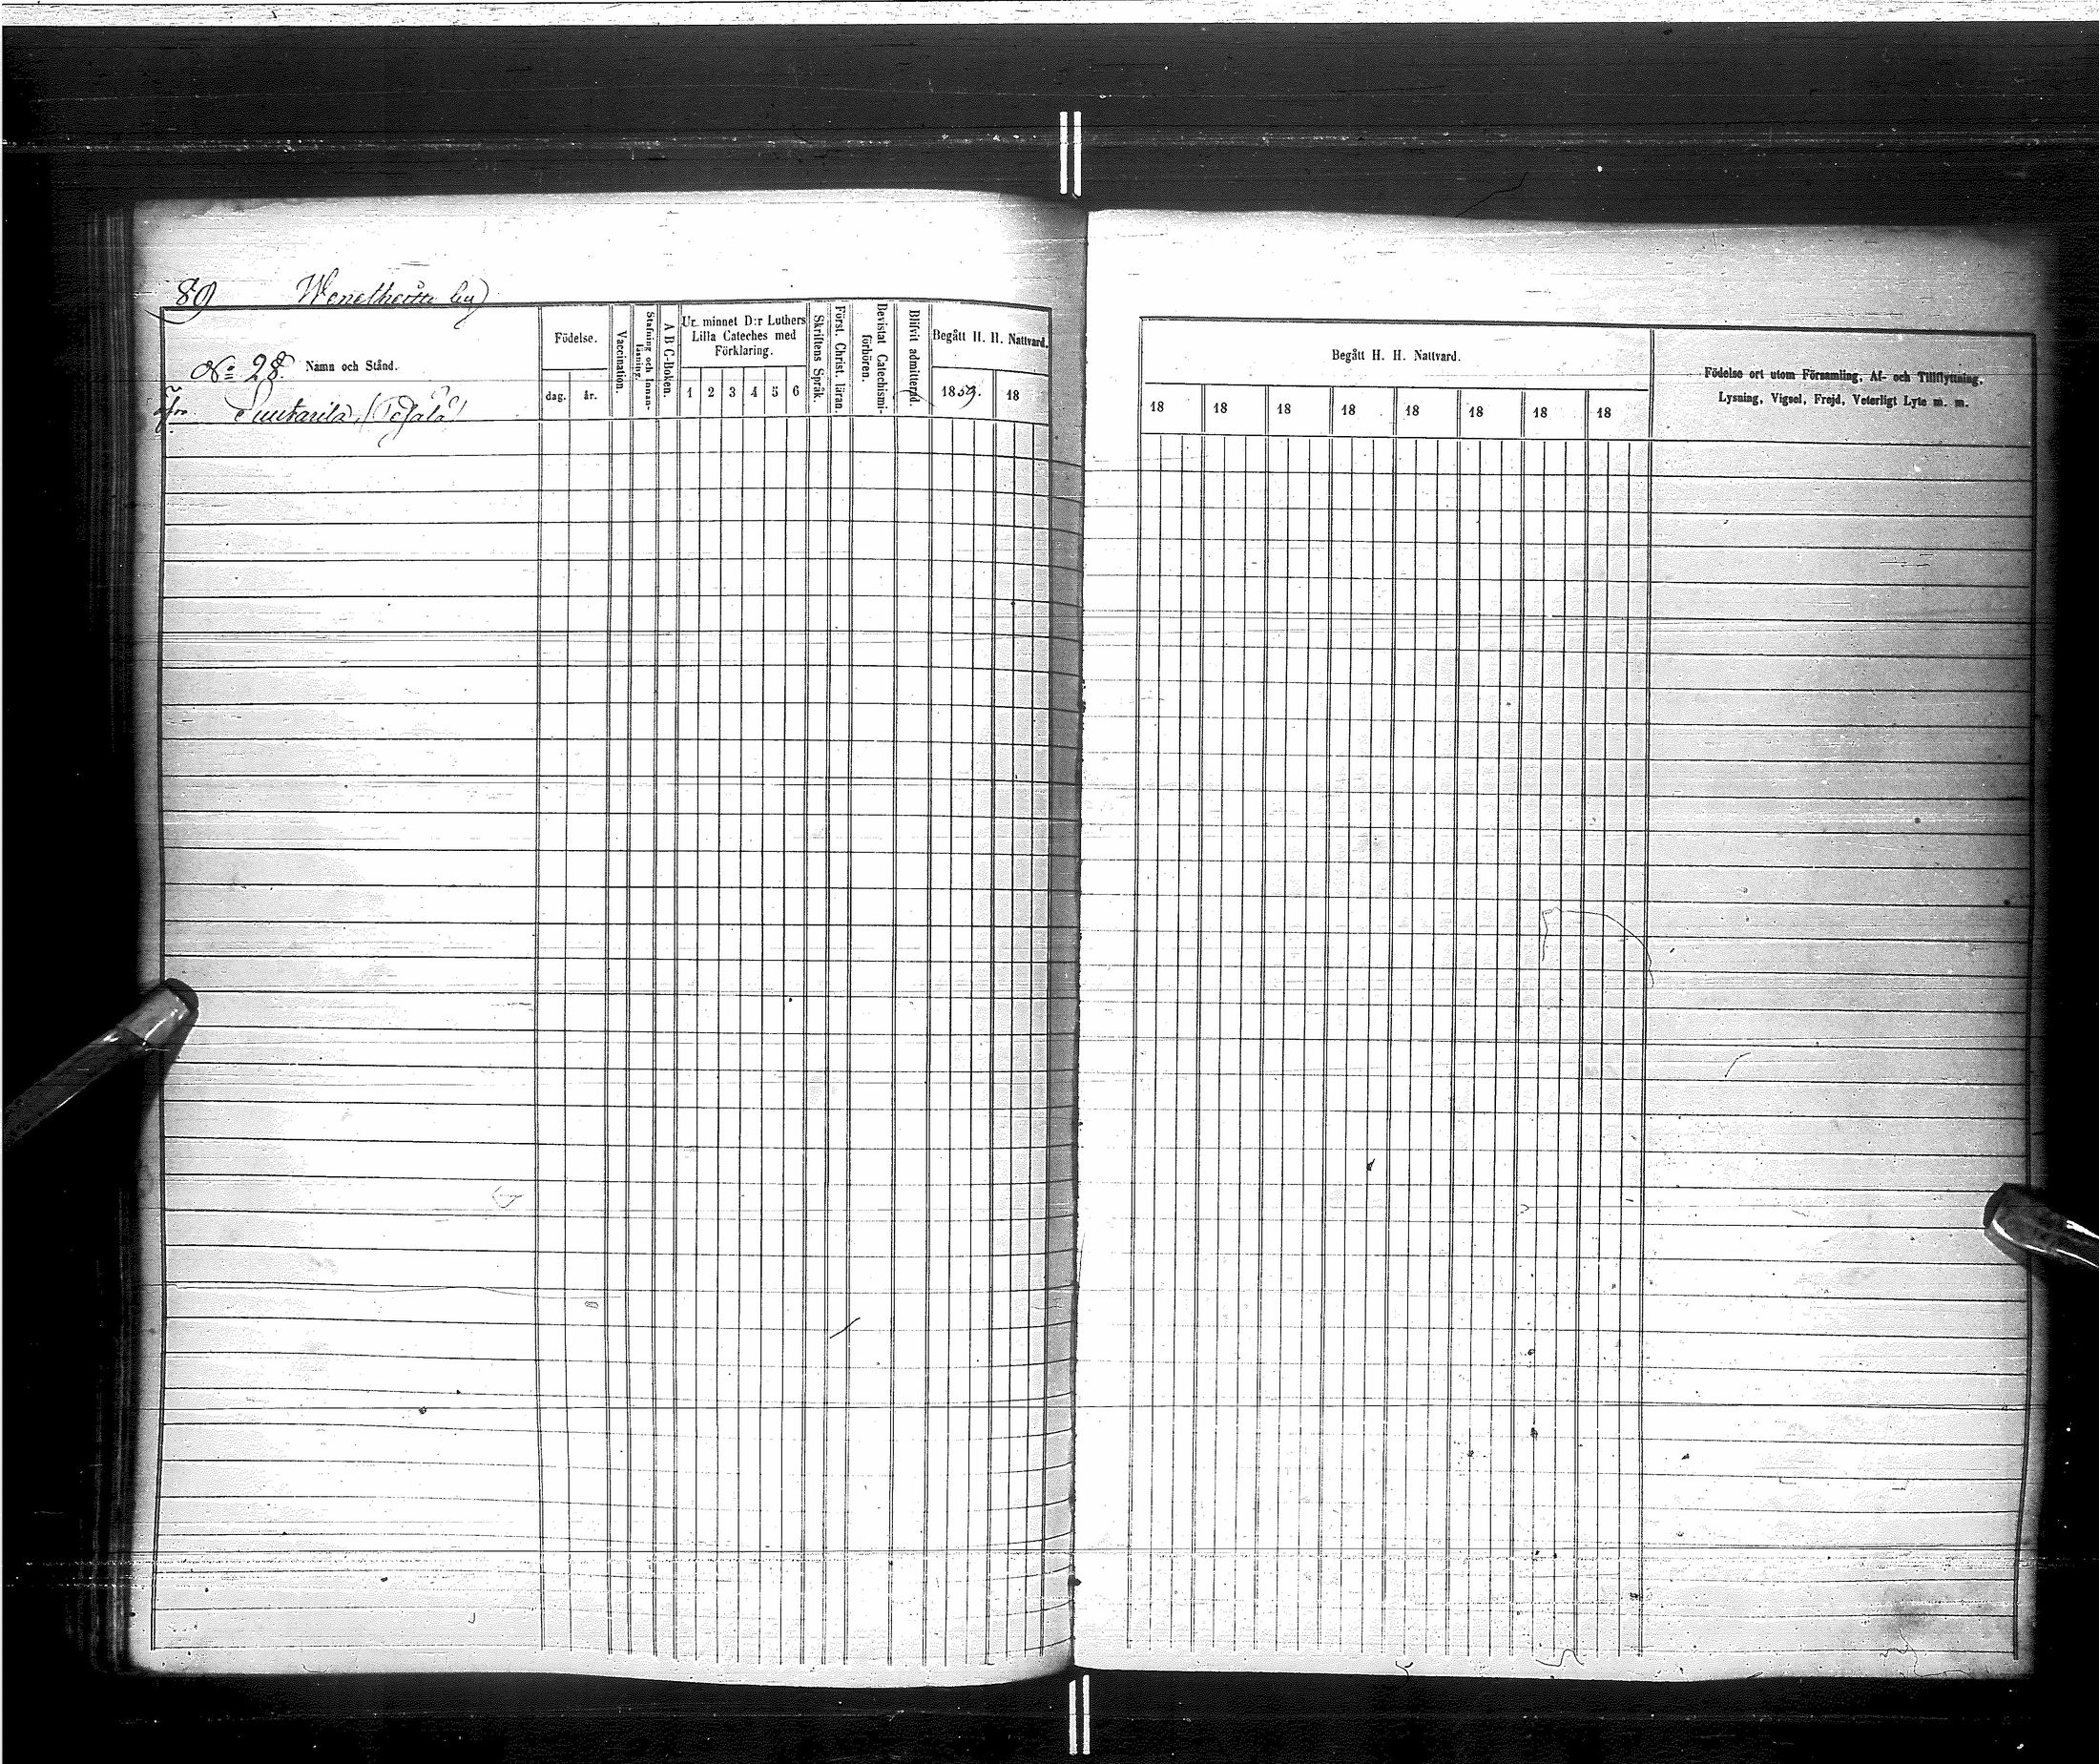 80 Wenetheitto by
No 28. Namn och Stånd.
Suutarila, (Pohjala)
Födelse.
dag. år.
Vaccination.
Stafning och Innan-
läsning.
A B C-Boken.
Ur minnet D:r Luthers
Lilla Cateches med
Förklaring.
1 2 3 4 5 6
Skriftens Språk.
Först. Christ. läran.
Bevistat Catechismi-
förhören.
Blifvit admitterad.
Begått H. H. Nattvard.
1859. 18
Begått H. H. Nattvard.
18 18 18 18 18 18 18 18
Födelse ort utom Församling, Af- och Tillflyttning,
Lysning, Vigsel, Frejd, Veterligt Lyte m. m.